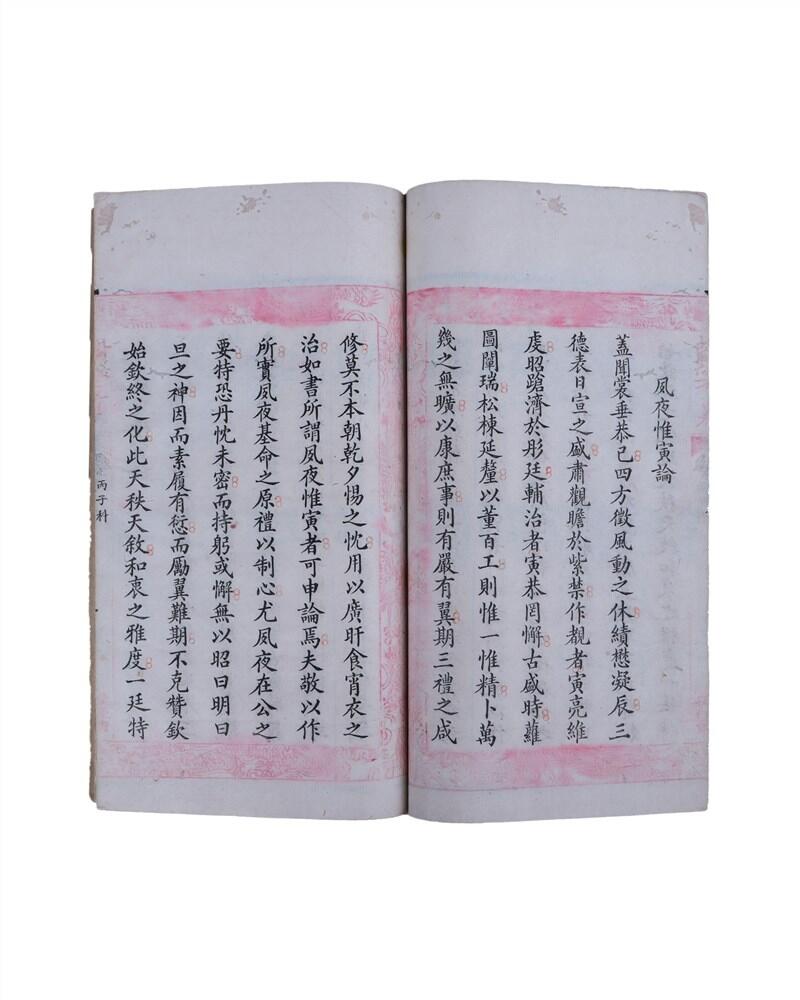 夙夜惟寅論
蓋聞裳垂恭己四方徵風動之休績懋凝辰三
德表日宣之盛肅觀瞻於紫禁作覩者寅亮維
虔昭蹌濟於彤廷輔治者寅恭罔懈古盛時蘿
圖闡瑞松棟延釐以董百工則惟一惟精卜萬
幾之無曠以康庶事則有嚴有翼期三禮之咸
修莫不本朝乾夕惕之忱用以廣旰食宵衣之
治如書所謂夙夜惟寅者可申論焉夫敬以作
所實夙夜基命之原禮以制心尤夙夜在公之
要特恐丹忱未密而持躬或懈無以昭日明日
旦之神因而素履有愆而勵翼難期不克贊欽
始欽終之化此天秩天敘和衷之雅度一廷特
丙子科